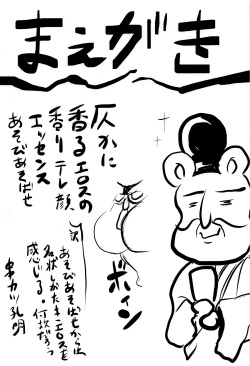 まえがき
仄かに
香るエロスの
香り テレ顔
エッセンス
あそびあそばせ
訳
あそびあそばせからは
名状しがたきエロスを
感じる。何故だろう
串カツ孔明
ボイン